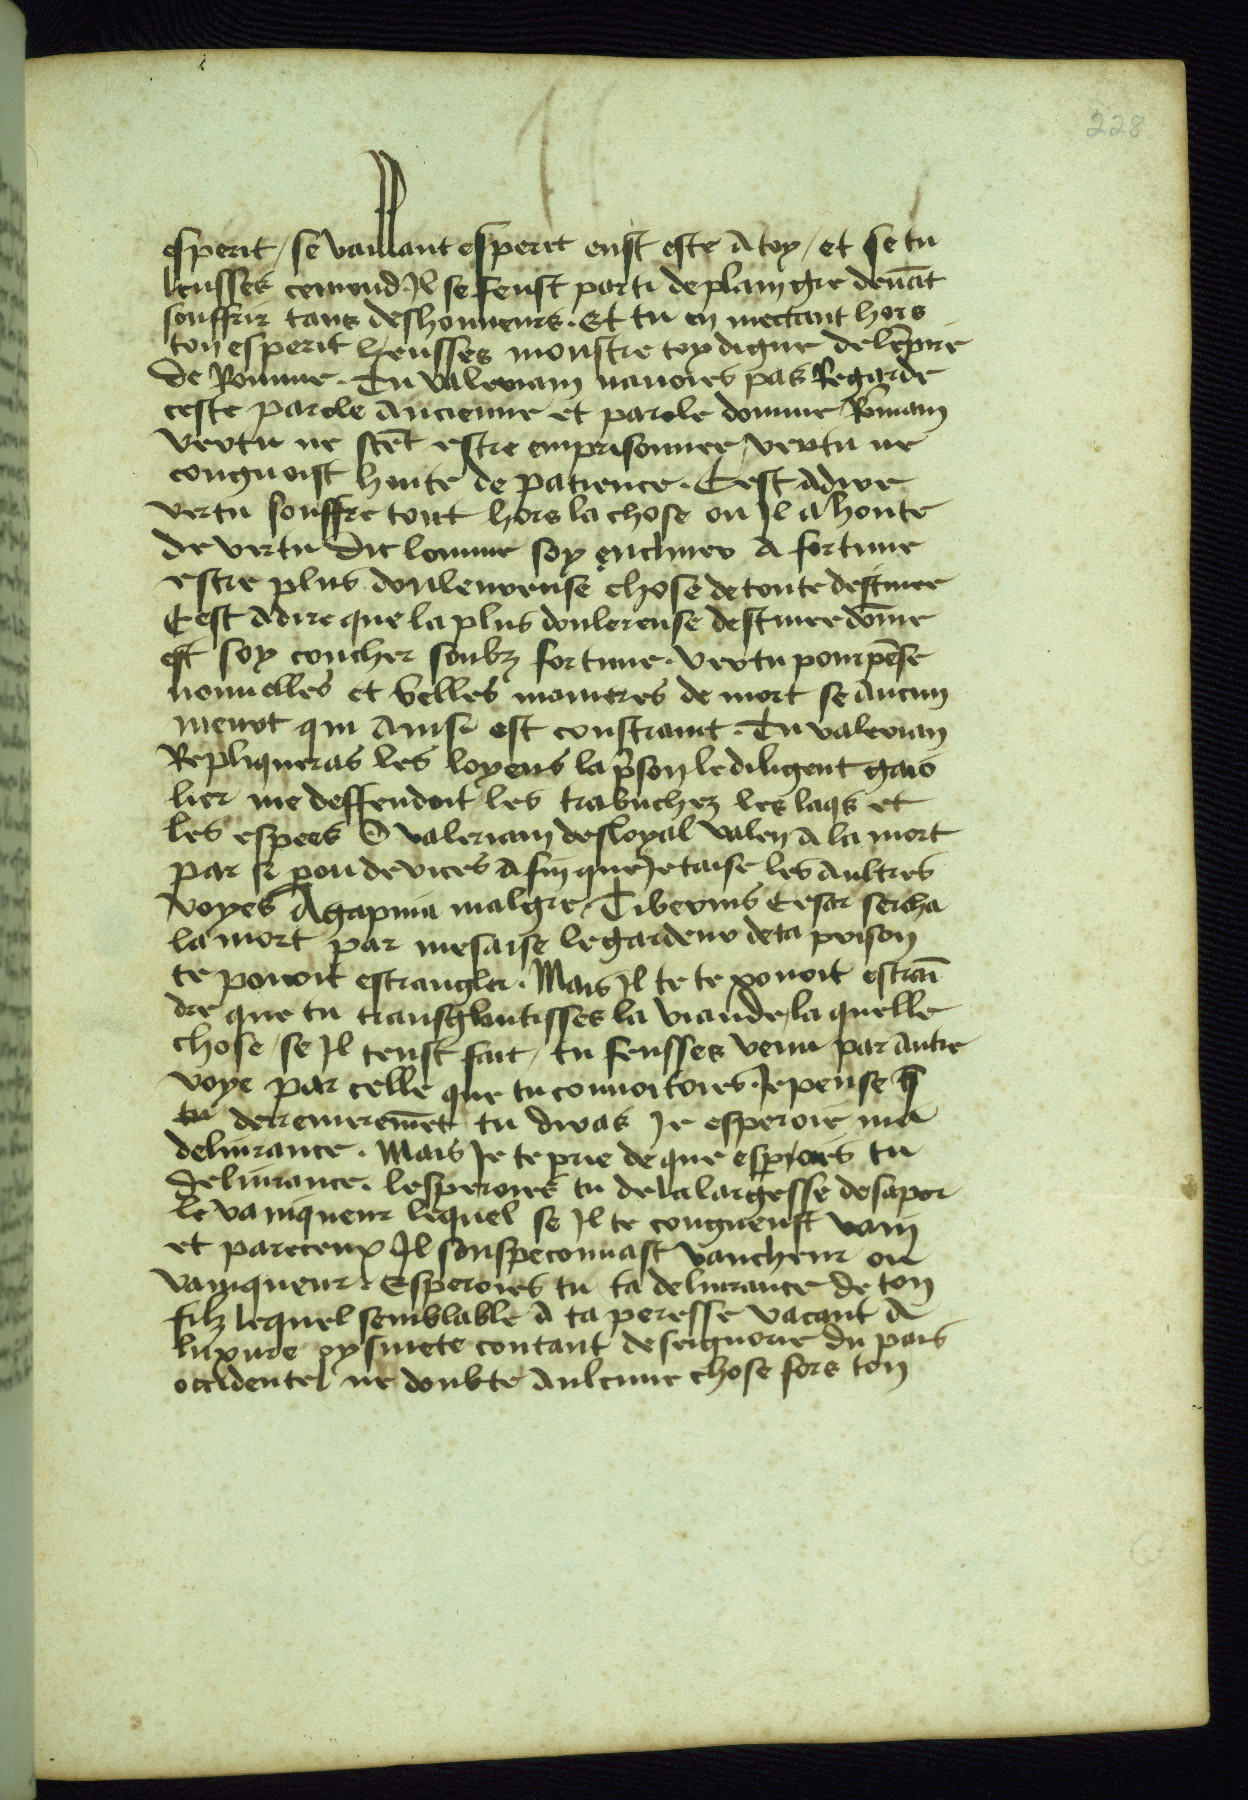 228
esperit / se vaillant esperit eust este a toy / et se tu
leusses cemond Il se feust parti de plain gre deuāt
souffrir tans deshonneurs. Et tu en mectant hors
ton esperit leusses monstre toy digne de lēpire
de Romme. Tu valeriam nauoies pas Regarde
ceste parole ancienne et parole domme Rōmain
vertu ne scet estre emprisonnee / vertu ne
congnoist honte de patience. Cest adire
vertu souffre tout hors la chose ou Il a honte
de vertu dit lomme soy encliner a fortune
estre plus douleureuse chose de toute destinee
Cest adire que la plus doulereuse destinee dōme
est soy coucher soubz fortune. vertu pourpēse
nouuelles et belles manieres de mort se aucun
meurt qui ainsi est constraint. Tu valerian
Repliqueras les loyens la pson le diligent gaio
lier me deffendoit les trabuchez les laqs et
les espees O valeriam desloyal valen a la mort
par si pou de vices afin que Je taise les aultres
voyes Agapinia malgre Tiberius Cesar sercha
la mort par mesaise le gardeur de ta prison
te pouoit estrangler. Mais Il te te pouoit estrai
dre que tu transgloutisses la viande / la quelle
chose / se Il teust fait / tu feusses venu par autre
voye par celle que tu conuoitoies. Je pense q̄
tu derreniremēt tu diras Je esperoie ma
deliurance. Mais Je te prie de que esperoies tu
deliurance. lesperoies tu de la largesse de sapor
le vainqueur lequel se Il te congneust vain
et pareceux Il souspeconnast vaincheur ou
vainqueur. Esperoies tu ta deliurance de ton
filz lequel semblable a ta peresse vacant a
luxure oysiuete contant de seignorie du pais
occidentel ne doubte aulcune chose fors ton